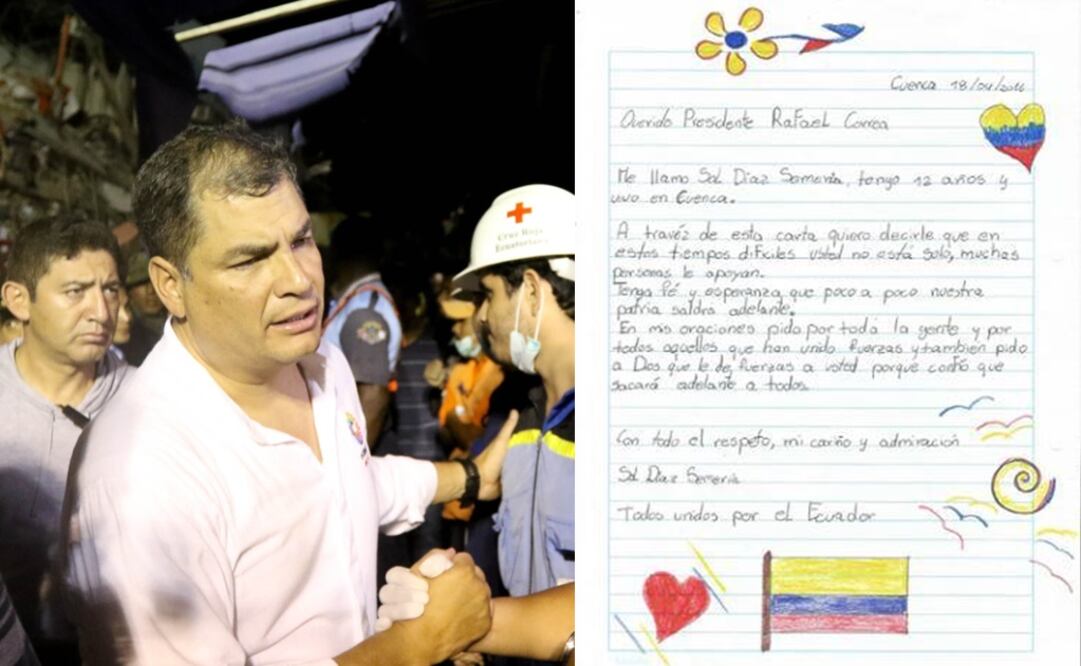 Cruz Roja
Ecuatoriana
Cuenca 18/04/2016
Querido Presidente Rafael Correa
Me llamo Sol Díaz, tengo 12 años y
vivo en Cuenca.
A travéz de esta carta quiero decirle que en
estos tiempos dificiles usted no está solo, muchas
personas le apoyan.
Tenga fé y esperanza que poco a poco nuestra
patria saldra adelante.
En mis oraciones pido por toda la gente y por
todos aquellos que han unido fuerzas y tambien pido
a Dios que le de fuerzas a usted porque confío que
sacará adelante a todos.
Con todo el respeto, mi cariño y admiración
Sol Díaz
Todos unidos por el Ecuador